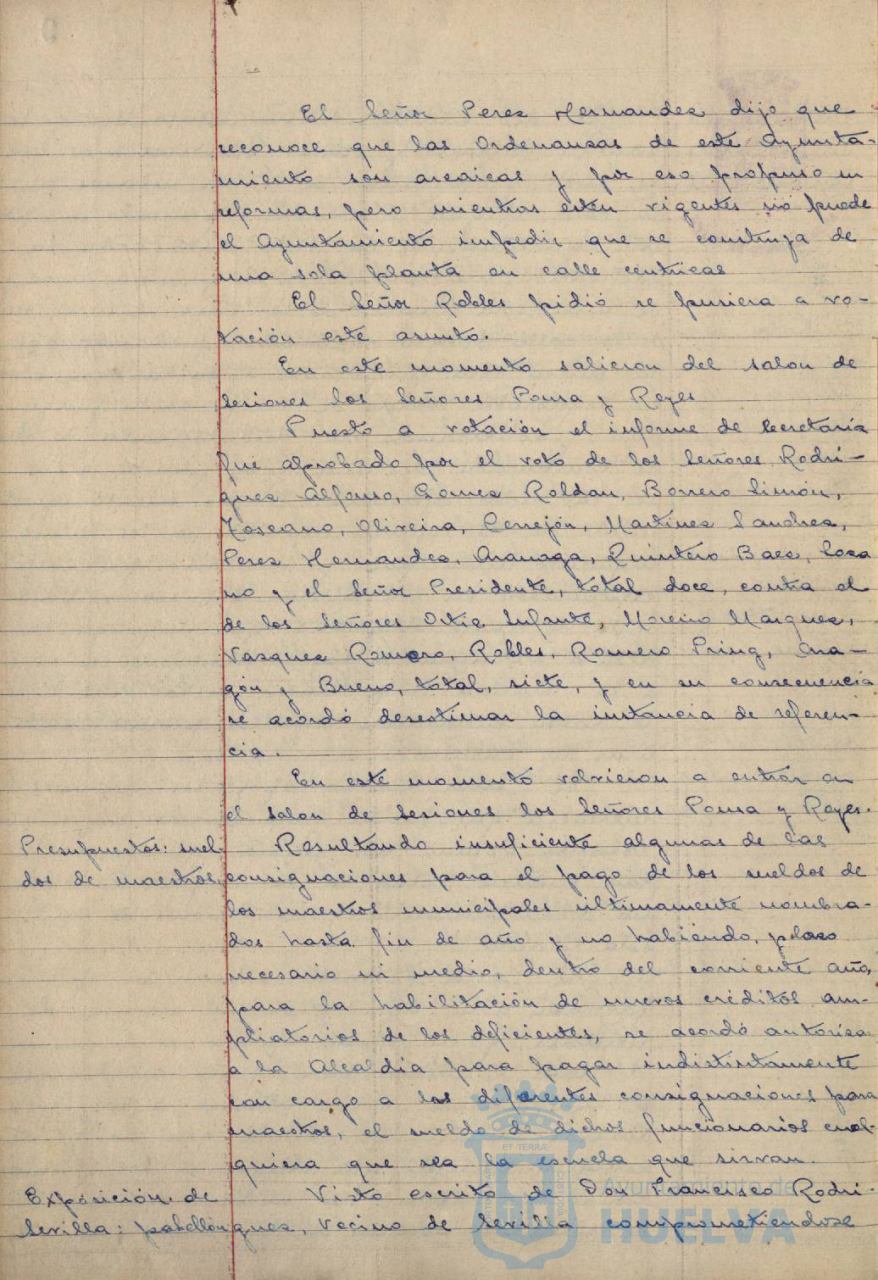 El Señor Perez Hernandez dijo que
reconoce que las Ordenanzas de este Ayunta-
miento son arcaicas y por eso propuso su
reformas, pero mientras esten vigentes no puede
el Ayuntamiento impedir que se construya de
una sola planta en calle centricas
El Señor Robles pidió se pusiera a vo-
tación este asunto.
En este momento salieron del salon de
Sesiones los Señores Ponsa y Reyes
Puesto a votación el informe de Secretaria
fue aprobado por el voto de los Señores Rodri-
guez Alfonso, Gomez Roldan, Borrero Simón,
Toscano, Oliveira, Cerrejón, Martinez Sanchez,
Perez Hernandez, Aranaga, Quintero Baez, Loza
no y el Señor Presidente, total doce, contra el
de los Señores Ortiz Infante, Moreno Marquez,
Vazquez Romero, Robles, Romero Pring, Ara-
gón y Bueno, total, siete, y en su consecuencia
se acordó desestimar la instancia de referen-
cia.
En este momento volvieron a entrar en
el salon de Sesiones los Señores Ponsa y Reyes.
Presupuestos: suel-
dos de maestros.
Resultando insuficiente algunas de las
consignaciones para el pago de los sueldos de
los maestros municipales ultimamente nombra-
dos hasta fin de año y no habiendo, plazo
necesario ni medio, dentro del corriente año,
para la habilitación de nuevos créditos am-
pliatorios de los deficientes, se acordó autoriza
a la Alcaldia para pagar indistintamente
con cargo a las diferentes consignaciones para
maestros, el sueldo de dichos funcionarios cual-
quiera que sea la escuela que sirvan.
Exposición de
Sevilla: pabellón
Visto escrito de Don Francisco Rodri-
guez, vecino de Sevilla comprometiendose
Ayuntamiento de
HUELVA